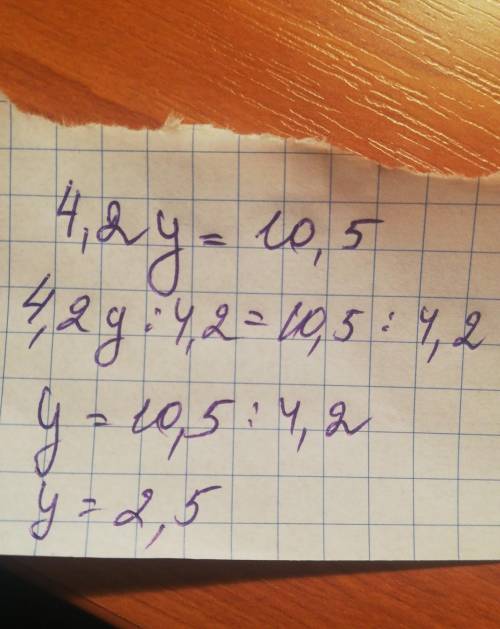 4,2y = 10,5
4,2y : 4,2 = 10,5 : 4,2
y = 10,5 : 4,2
y = 2,5